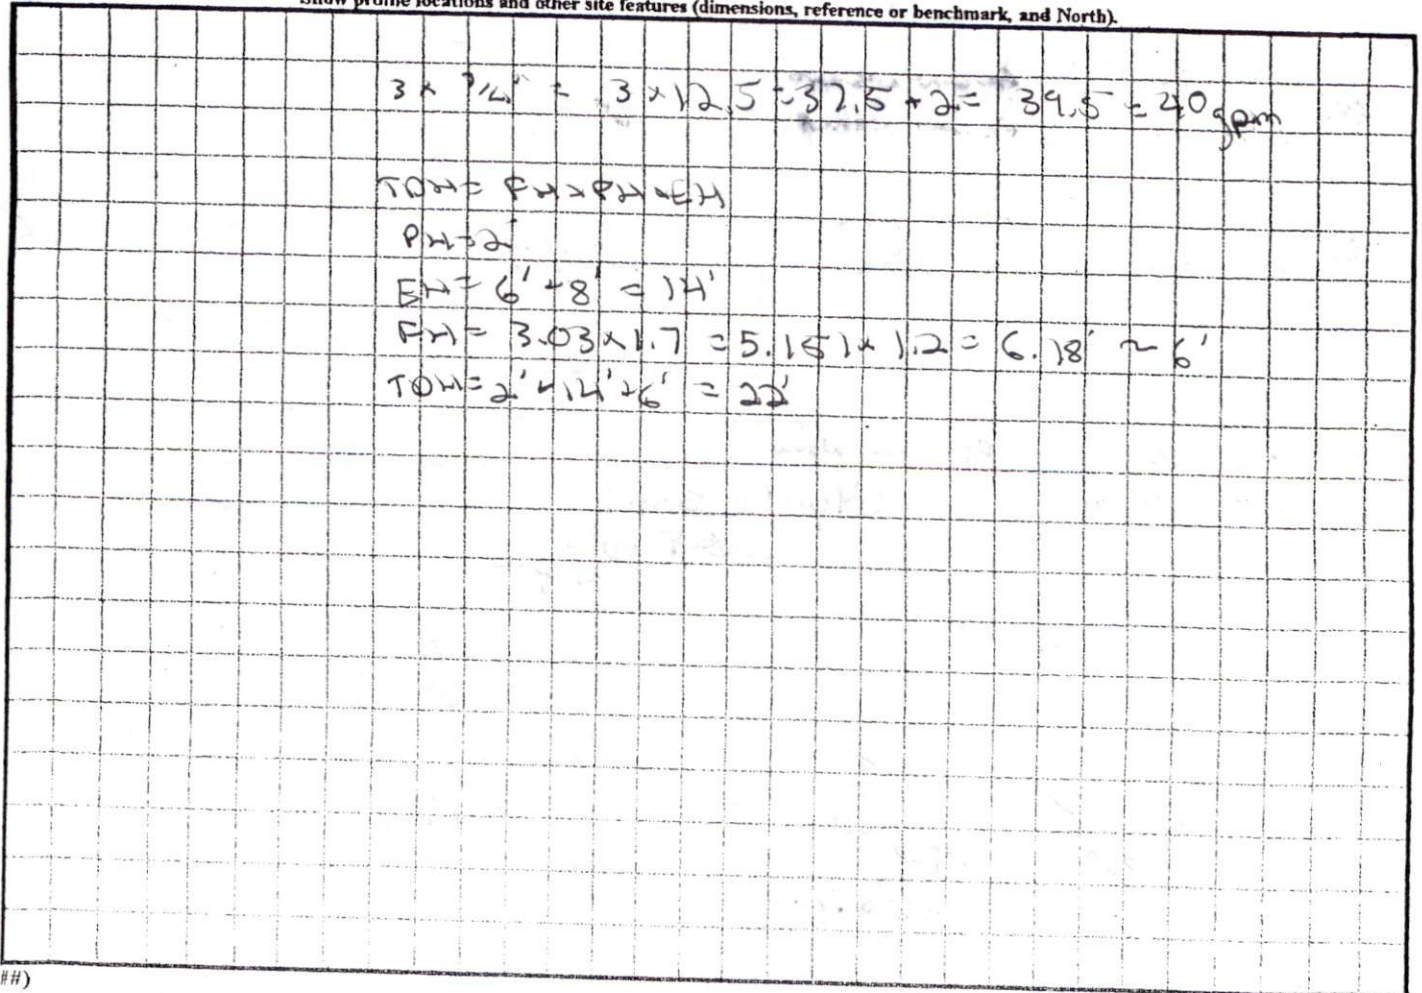 Show profile locations and other site features (dimensions, reference or benchmark, and North).
3 x 3/4" = 3 x 12.5 = 37.5 + 2 = 39.5 = 40 gpm
TDH = FH + PH + EH
PH = 2'
EH = 6' + 8' = 14'
FH = 3.03 x 1.7 = 5.151 x 1.2 = 6.18' ~ 6'
TDH = 2' + 14' + 6' = 22'
##)